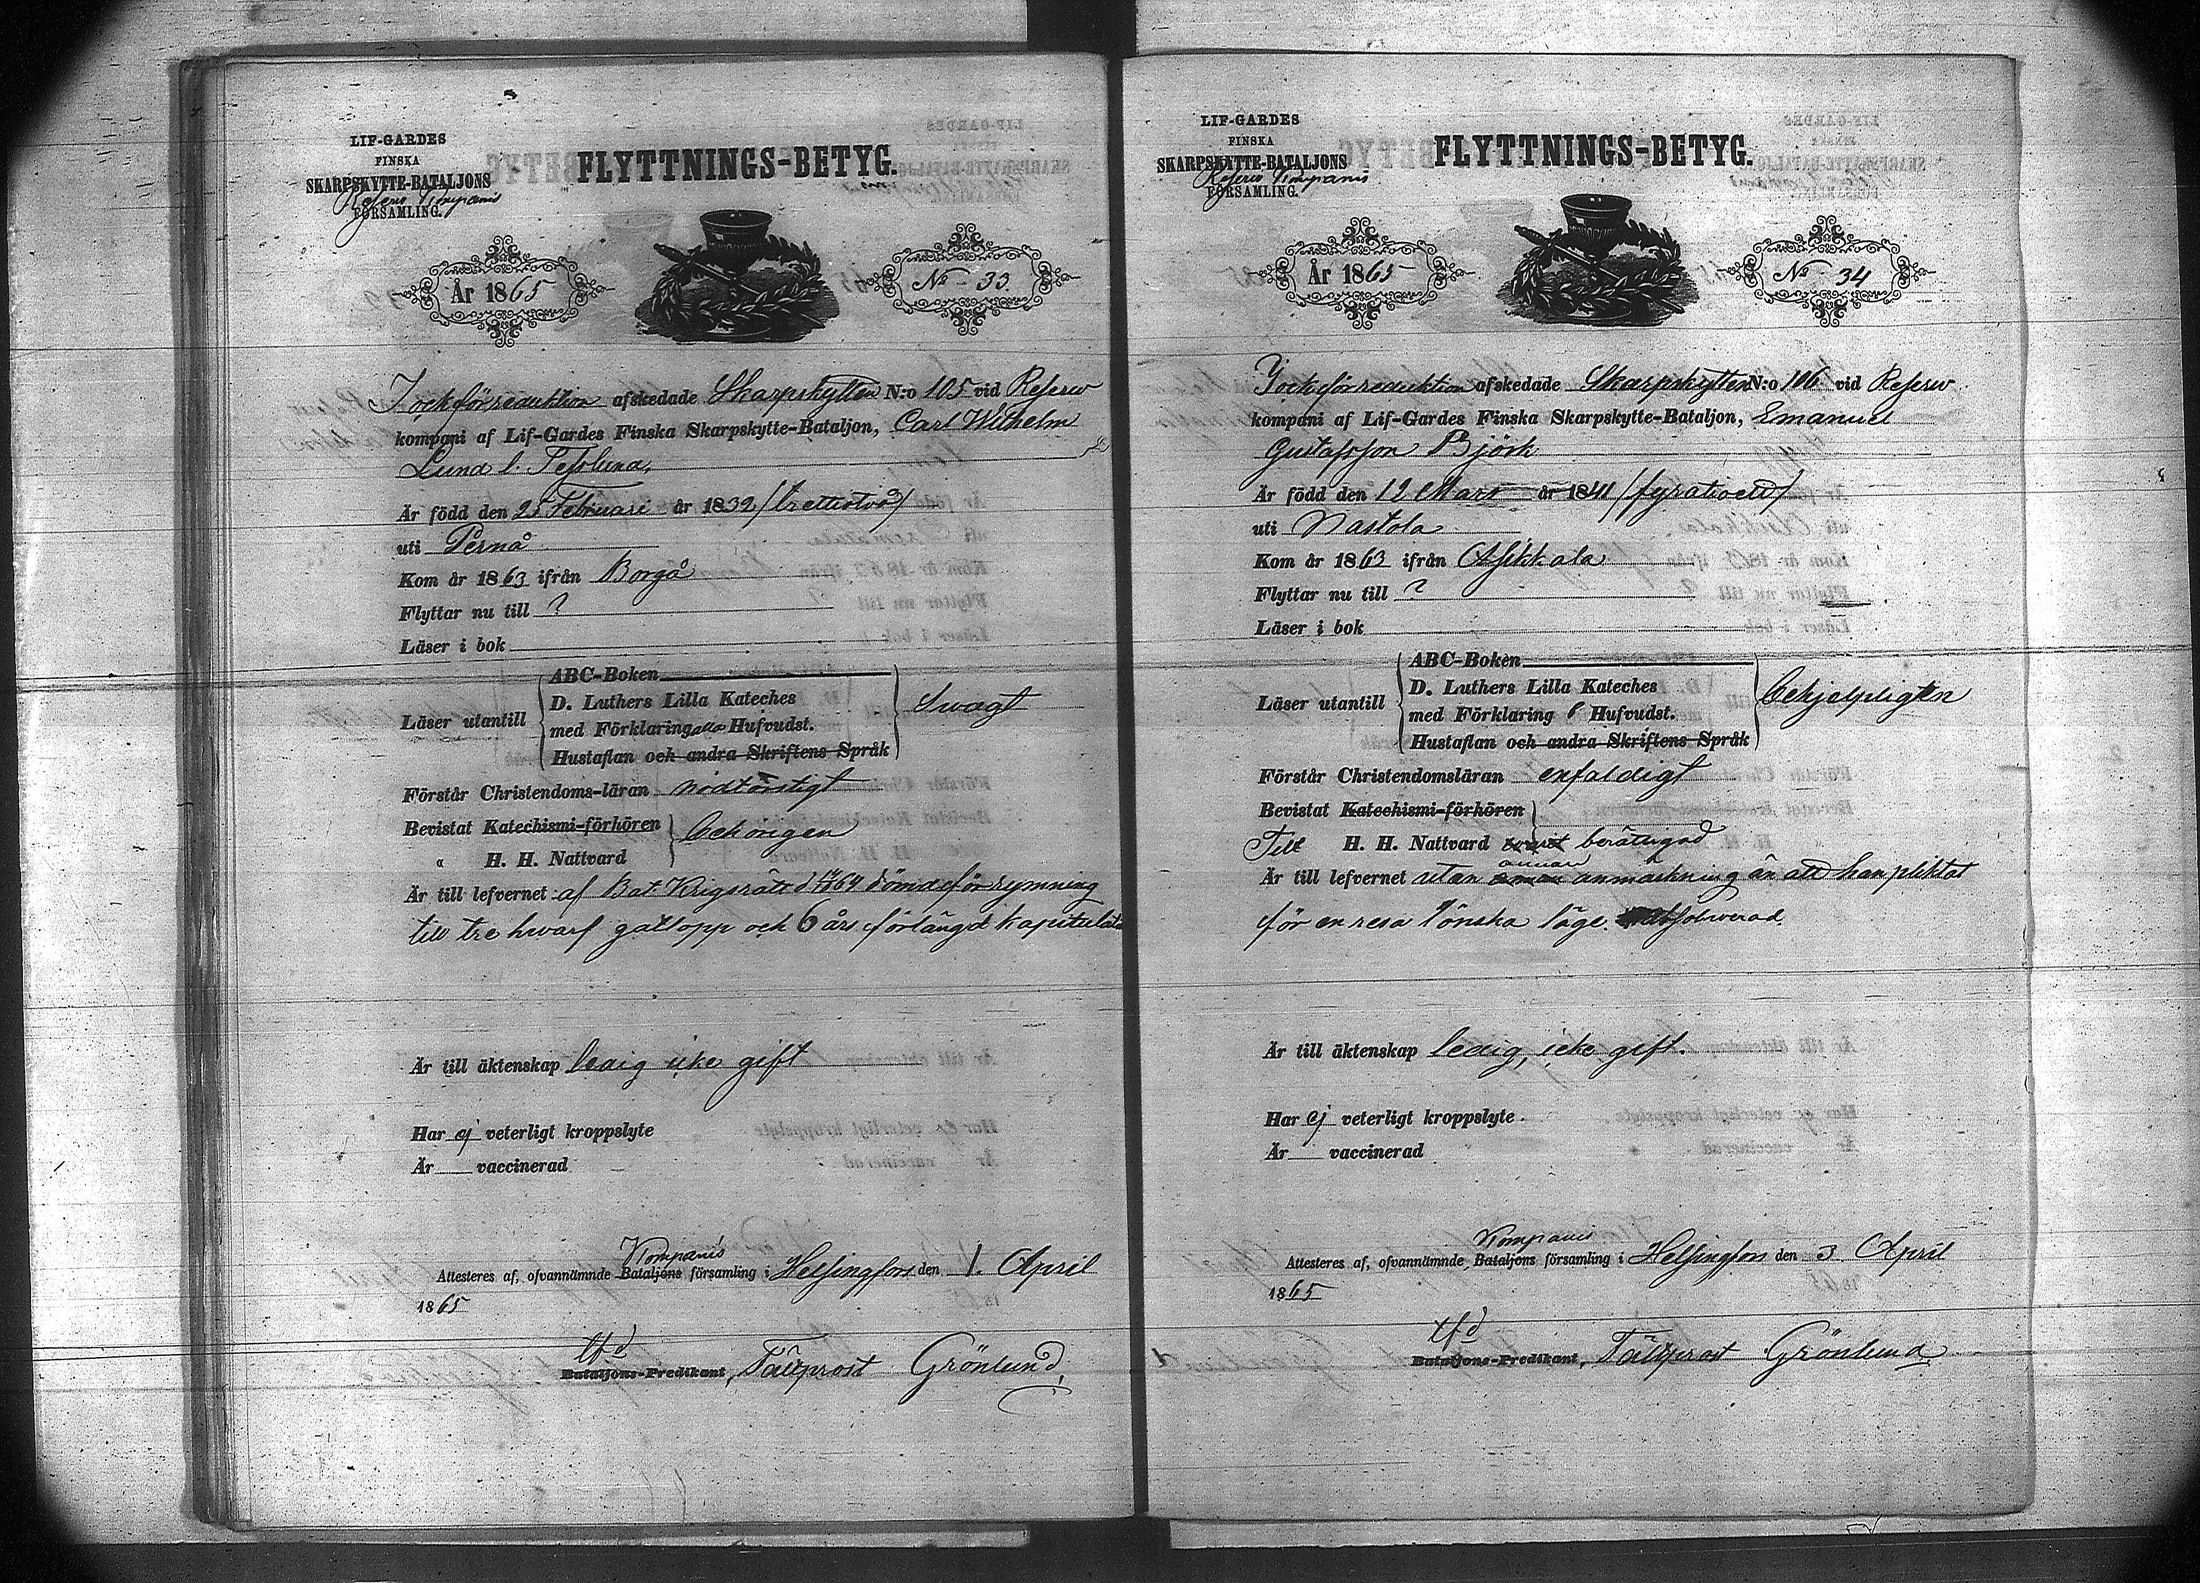 LIF-GARDES
FINSKA
SKARPSKYTTE-BATALJONS
Reserv Kompanis
FÖRSAMLING.
FLYTTNINGS-BETYG.
År 1865
No 33.
afskedade Skarpskytten N:o 105 vid Reserv
kompani af Lif-Gardes Finska Skarpskytte-Bataljon, Carl Wilhelm
Lund l. Tesslund,
Är född den 25 Februari år 1832 /trettiotvå/
uti Pernå
Kom år 1863 ifrån Borgå
Flyttar nu till ?
Läser i bok
Läser utantill
ABC-Boken
D. Luthers Lilla Kateches
med Förklaring Hufvudst.
Hustaflan och andra Skriftens Språk
Swagt
Förstår Christendoms-läran nödtörftigt
Bevistat Katechismi-förhören
" H. H. Nattvard
behörigen
Är till lefvernet af Bat Krigsrätt d 1864 dömd för rymning
till tre hwarf gatlopp och 6 års förlängd Kapitulation
Är till äktenskap ledig icke gift
Har ej veterligt kroppslyte
Är vaccinerad
Kompanis
Attesteres af, ofvannämnde Bataljons församling i Helsingfors den 1. April
1865
tfd
Bataljons-Predikant, Fältprost Grönlund,
LIF-GARDES
FINSKA
SKARPSKYTTE-BATALJONS
Reserv Kompanis
FÖRSAMLING.
FLYTTNINGS-BETYG.
År 1865
No 34
afskedade Skarpskytten N:o 106 vid Reserv
kompani af Lif-Gardes Finska Skarpskytte-Bataljon, Emanuel
Gustafsson Björk
Är född den 12 Mars år 1841 /fyratioett/
uti Nastola
Kom år 1863 ifrån Asikkala
Flyttar nu till ?
Läser i bok
Läser utantill
ABC-Boken
D. Luthers Lilla Kateches
med Förklaring Hufvudst.
Hustaflan och andra Skriftens Språk
behjelpligen
Förstår Christendomsläran enfaldigt
Bevistat Katechismi-förhören
Till H. H. Nattvard berättigad
annan
Är till lefvernet utan anmärkning än att han pliktat
för en resa lönska läge. absolverad.
Är till äktenskap ledig, icke gift.
Har ej veterligt kroppslyte.
Är vaccinerad
Kompanis
Attesteres af, ofvannämnde Bataljons församling i Helsingfors den 3 April
1865
tfd
Bataljons-Predikant, Fältprost Grönlund